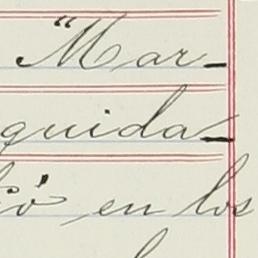 "Mar-
quida-
ió en los